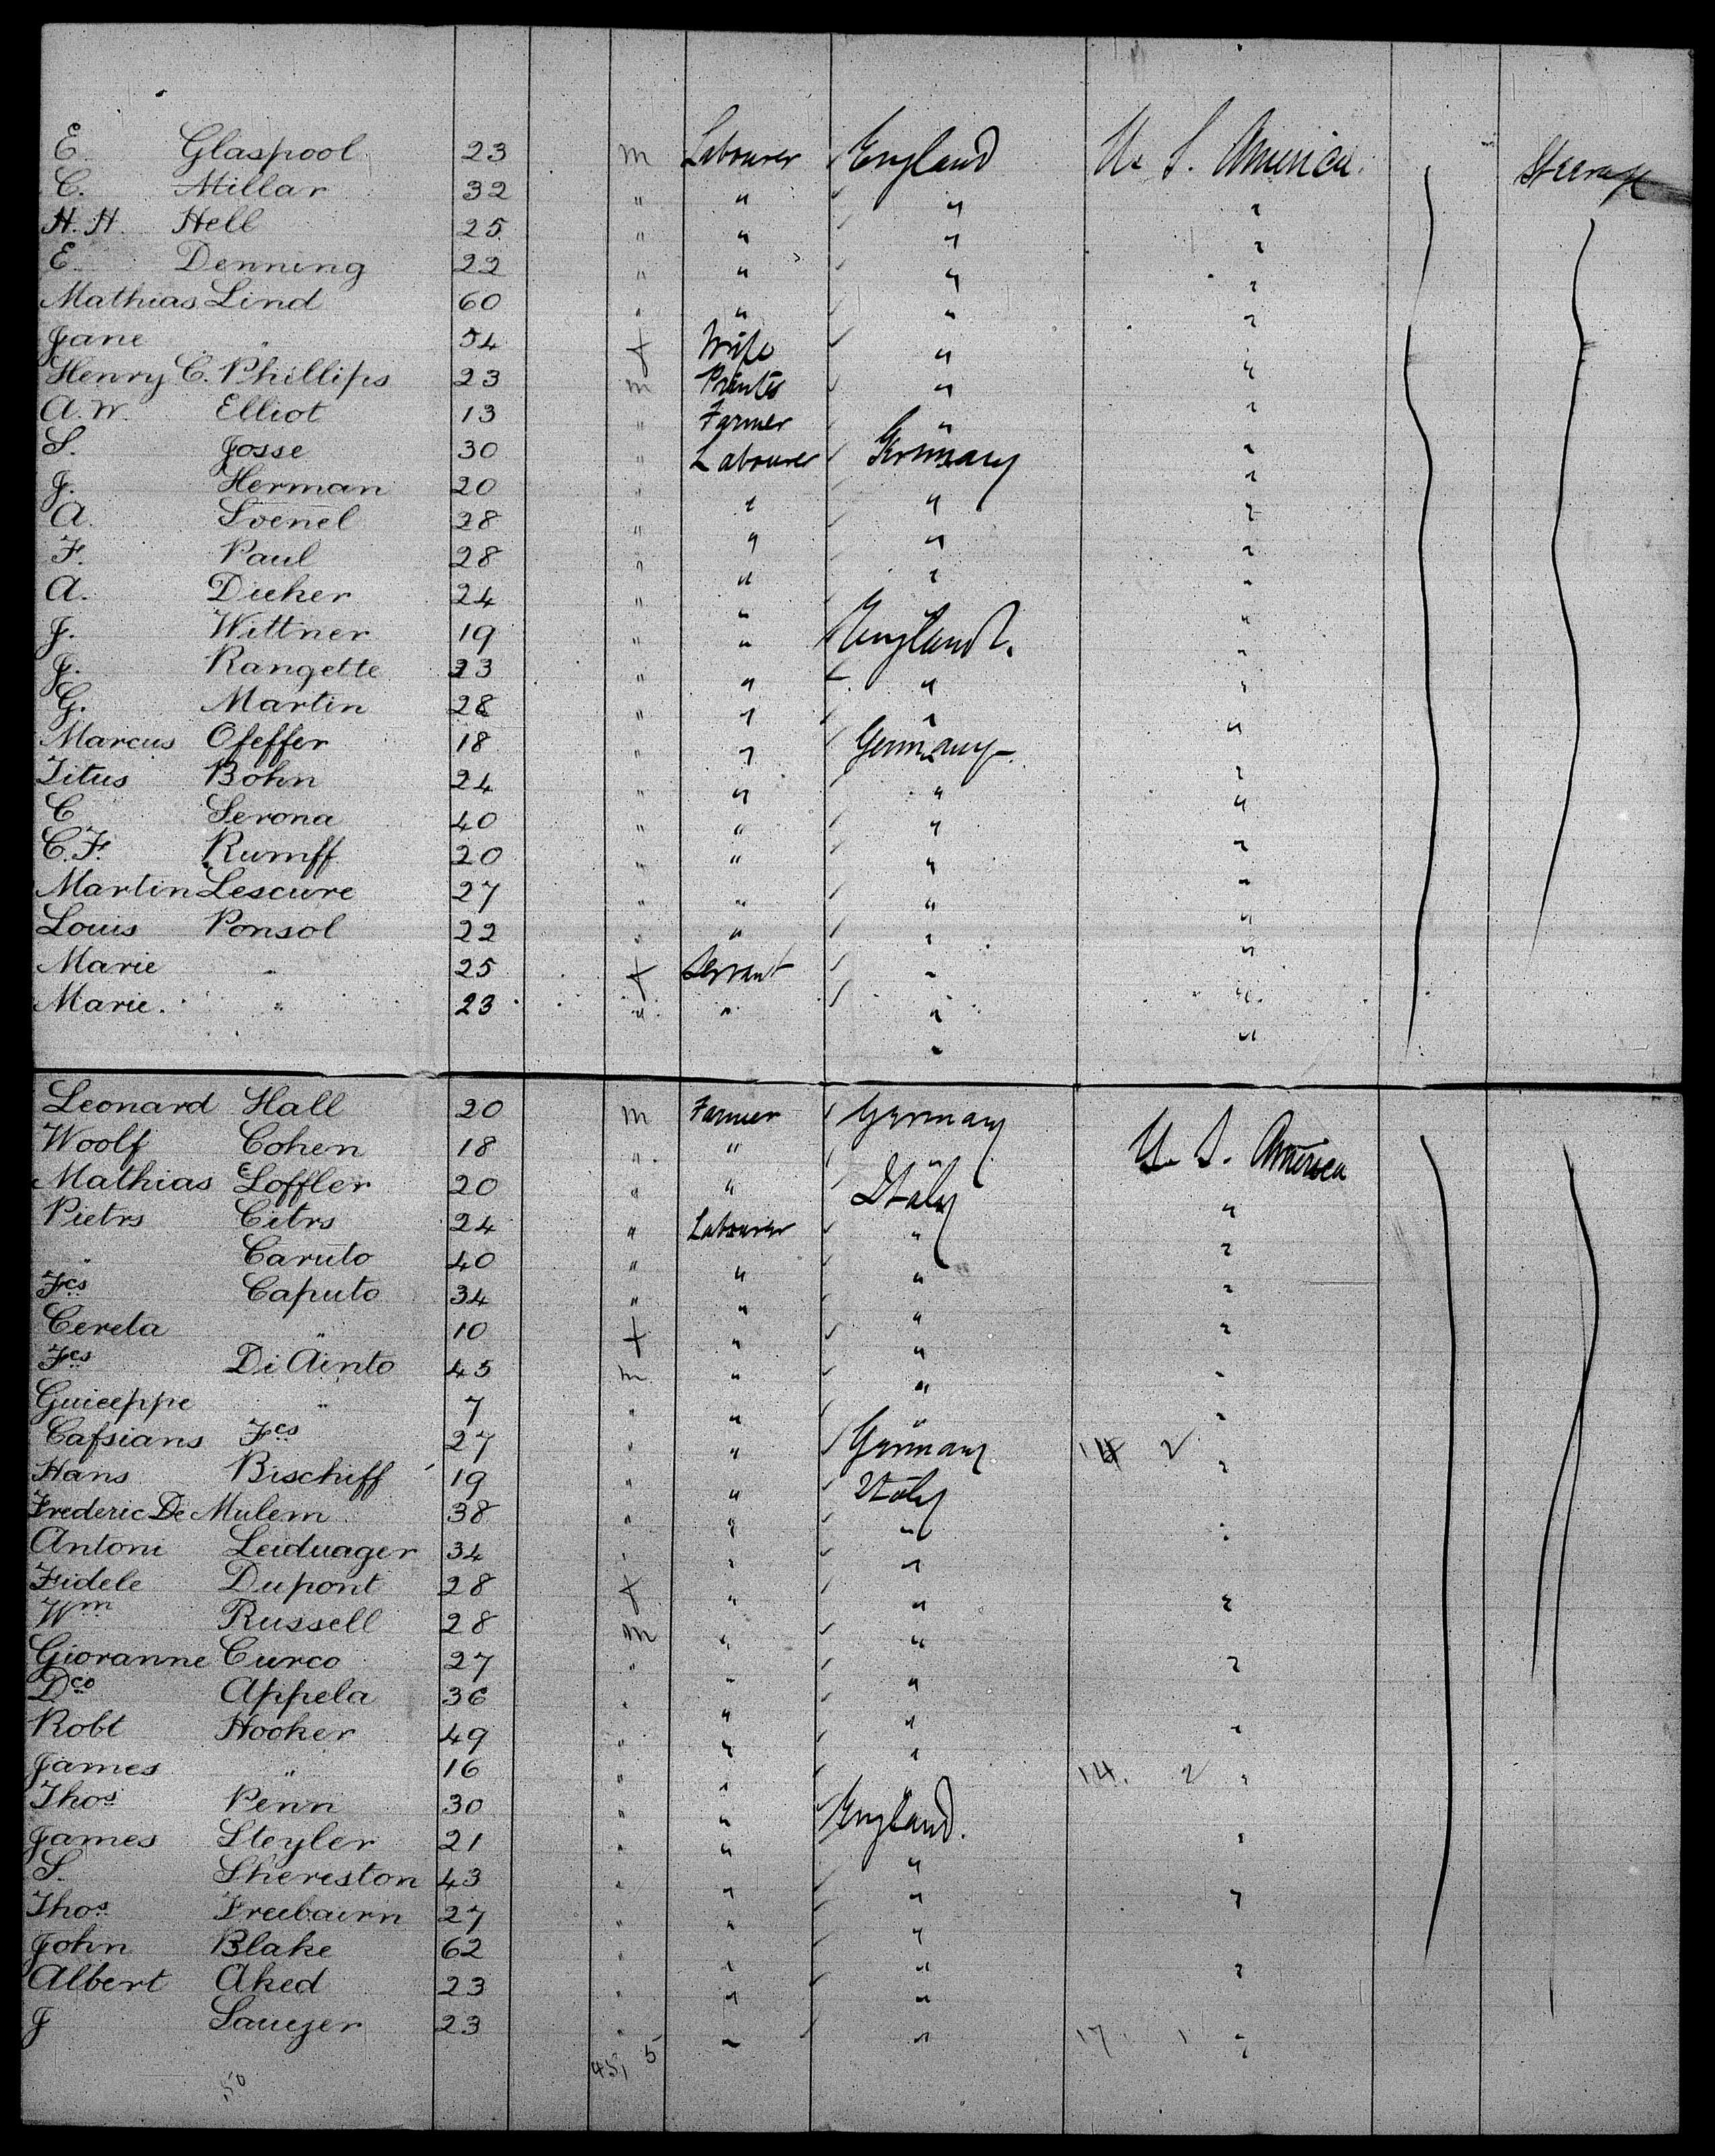 E. Glaspool 23 m Labourer England U. S. America. Steerage
C. Millar 32 " " " "
H. H. Hell 25 " " " "
E. Denning 22 " " " "
Mathias Lind 60 " " " "
Jane " 54 f Wife " "
Henry C. Phillips 23 m Printer " "
A. W. Elliot 13 " Farmer " "
S. Josse 30 " Labourer Germany "
J. Herman 20 " " " "
A. Svenel 28 " " " "
F. Paul 28 " " " "
A. Dieker 24 " " " "
J. Wittner 19 " " England. "
J. Rangette 23 " " " "
G. Martin 28 " " " "
Marcus Ofeffer 18 " " Germany "
Titus Bohn 24 " " " "
C Serona 40 " " " "
C. F. Rumff 20 " " " "
Martin Lescure 27 " " " "
Louis Ponsol 22 " " " "
Marie " 25 f Servant " "
Marie. " 23 " " " "
Leonard Hall 20 m Farmer Germany U. S. America
Woolf Cohen 18 " " "
Mathias Loffler 20 " " Italy "
Pietrs Citrs 24 " Labourer " "
" Caruto 40 " " " "
Fcs Caputo 34 " " " "
Cereta " 10 f " " "
Fcs Di Ainto 45 m " " "
Guiceppe " 7 " " " "
Cafsians Fcs 27 " " Germany 14 2
Hans Bischiff 19 " " Italy "
Frederic De Mulem 38 " " " "
Antoni Leiduager 34 " " "
Fidele Dupont 28 f " " "
Wm Russell 28 m " "
Gioranne Curco 27 " " " "
Dco Appela 36 " " "
Robt Hooker 49 " " " "
James " 16 " " 14. 2 "
Thos Penn 30 " " England.
James Steyler 21 " " " "
S. Shereston 43 " " " "
Thos Freebairn 27 " " "
John Blake 62 " " " "
Albert Aked 23 " " "
J Sauyer 23 " " " 17 1 "
50 45, 5